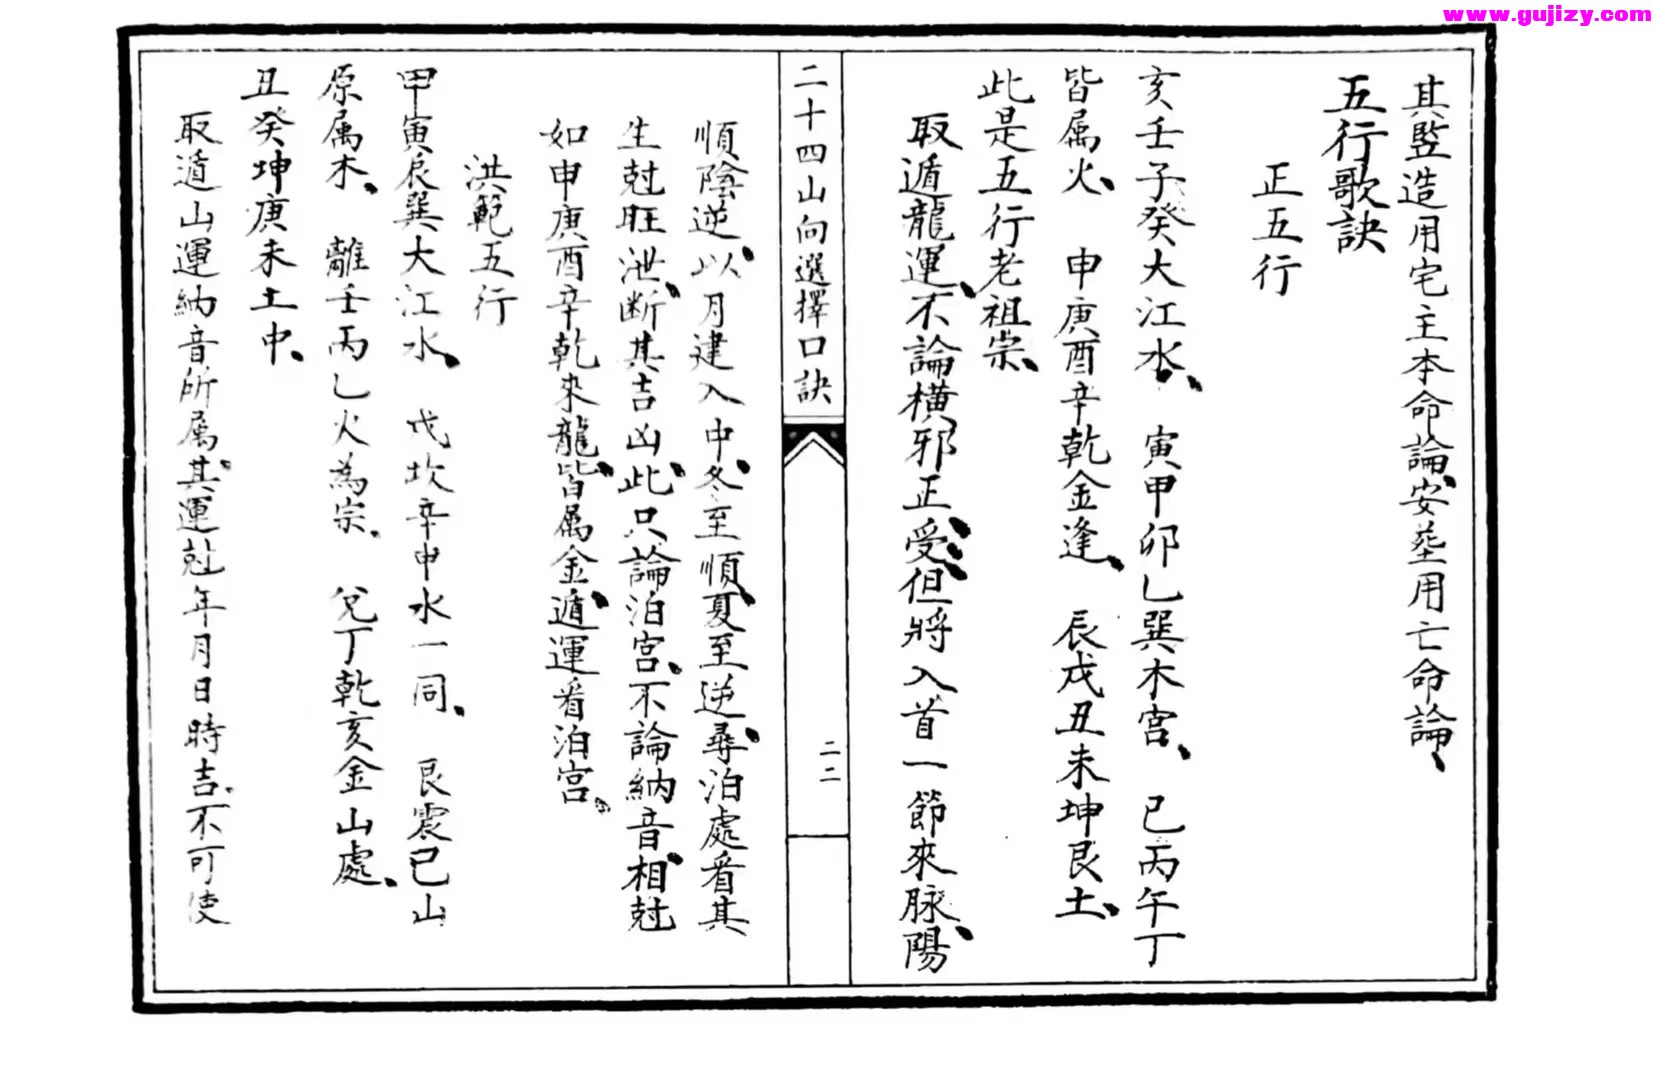 www.gujizy.com
其竪造用宅主本命論、安葬用亡命論、
五行歌訣
正五行
亥壬子癸大江水、　寅甲卯乙巽木宮、　巳丙午丁
皆属火、　申庚酉辛乾金逢、　辰戌丑未坤艮土、
此是五行老祖宗、
取遁龍運、不論橫邪正受、但將入首一節來脉、陽
二十四山向選擇口訣
二二
順陰逆、以月建入中、冬至順、夏至逆、尋泊處看其
生尅旺洩、断其吉凶、此只論泊宮、不論納音、相尅
如申庚酉辛乾來龍、皆属金、遁運看泊宮、
洪範五行
甲寅辰巽大江水、　戌坎辛申水一同、　艮震巳山
原属木、　離壬丙乙火為宗、　兌丁乾亥金山處、
丑癸坤庚未土中、
取遁山運納音所属、其運尅年月日時吉、不可使